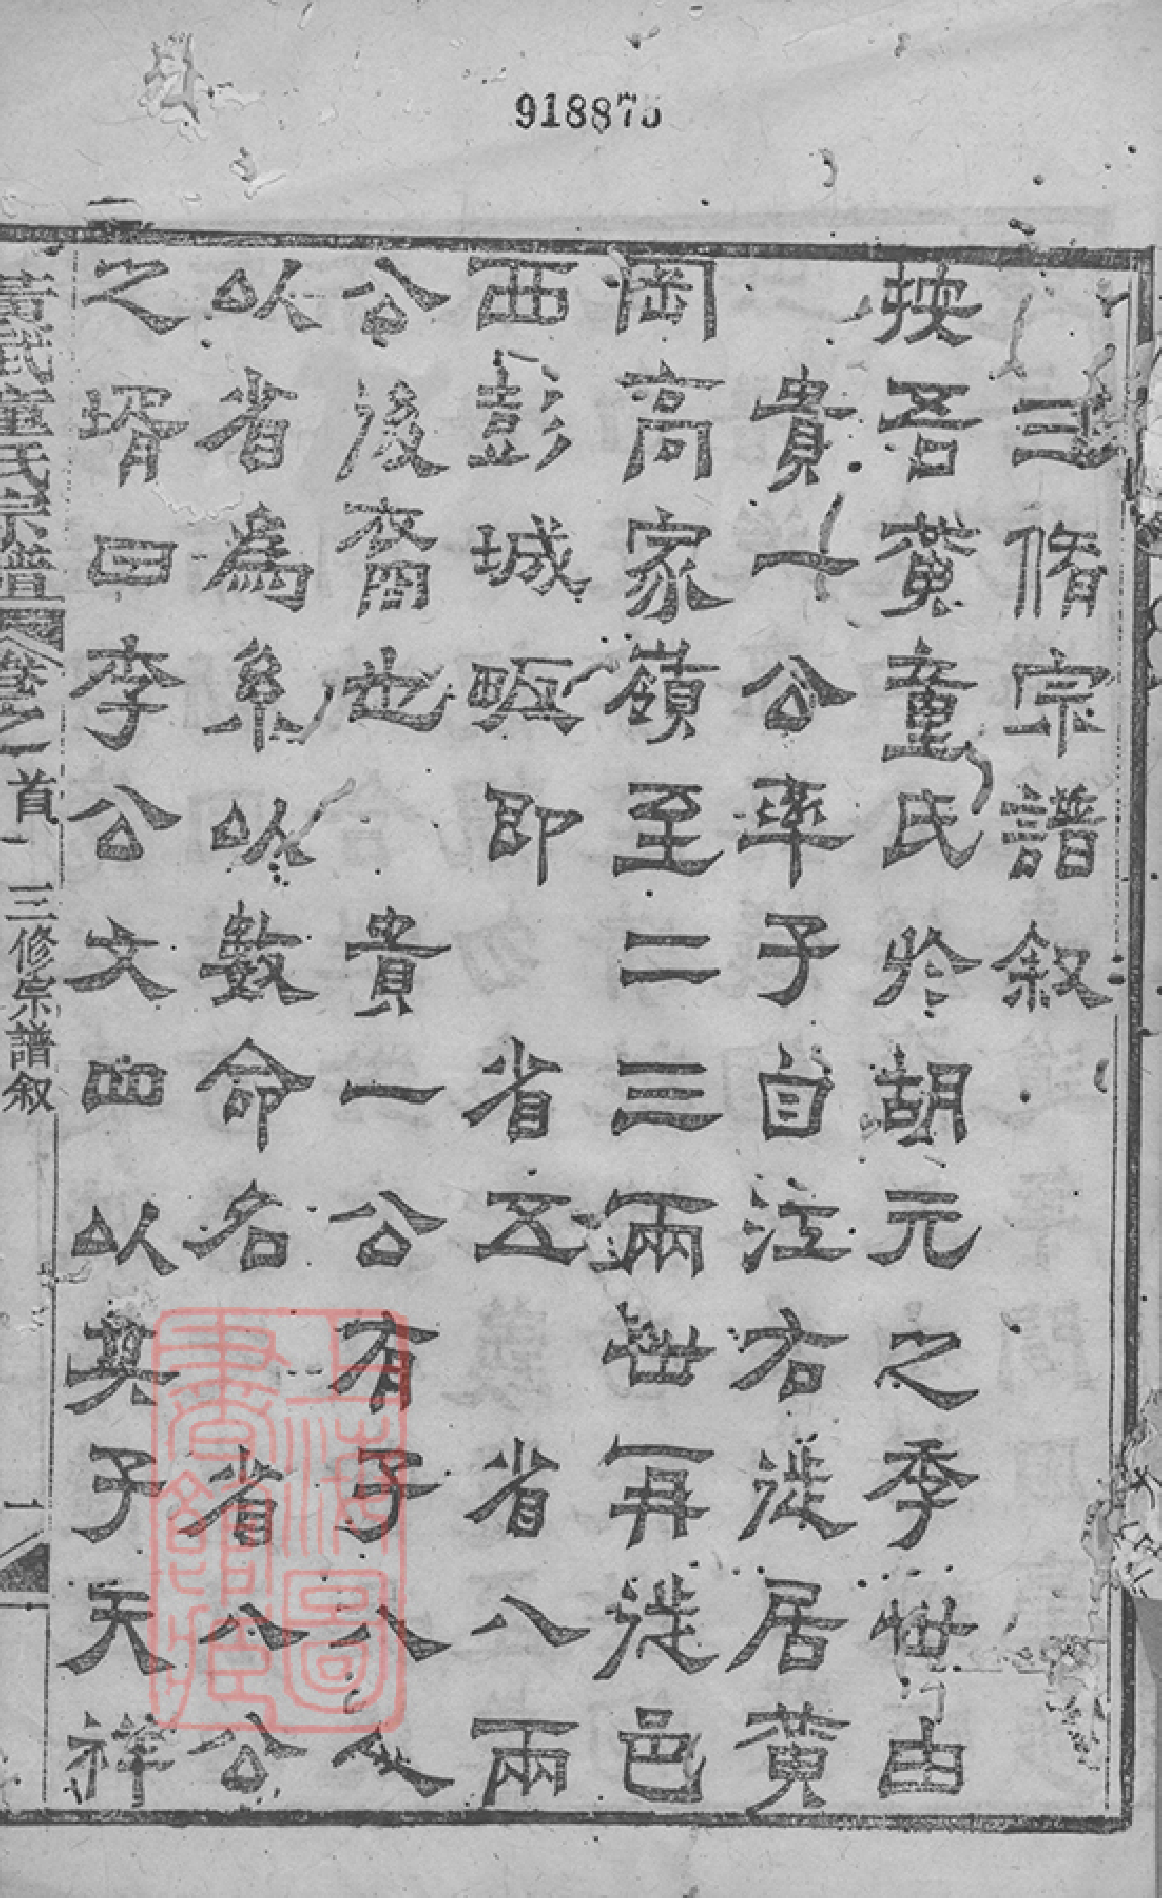 918875
三脩宗譜叙
按吾黄童氏於胡元之季世由
貴一公率子自江右徙居黄
岡高家嶺至二三兩世再徙邑
西彭城畈即 省五 省八兩
公後裔也 貴一公有子八人
以省為系以數命名 省八公
之壻曰李公文四以奥子天祥
黃岡童氏宗譜 卷之首 三修宗譜叙 一
上海圖書館藏